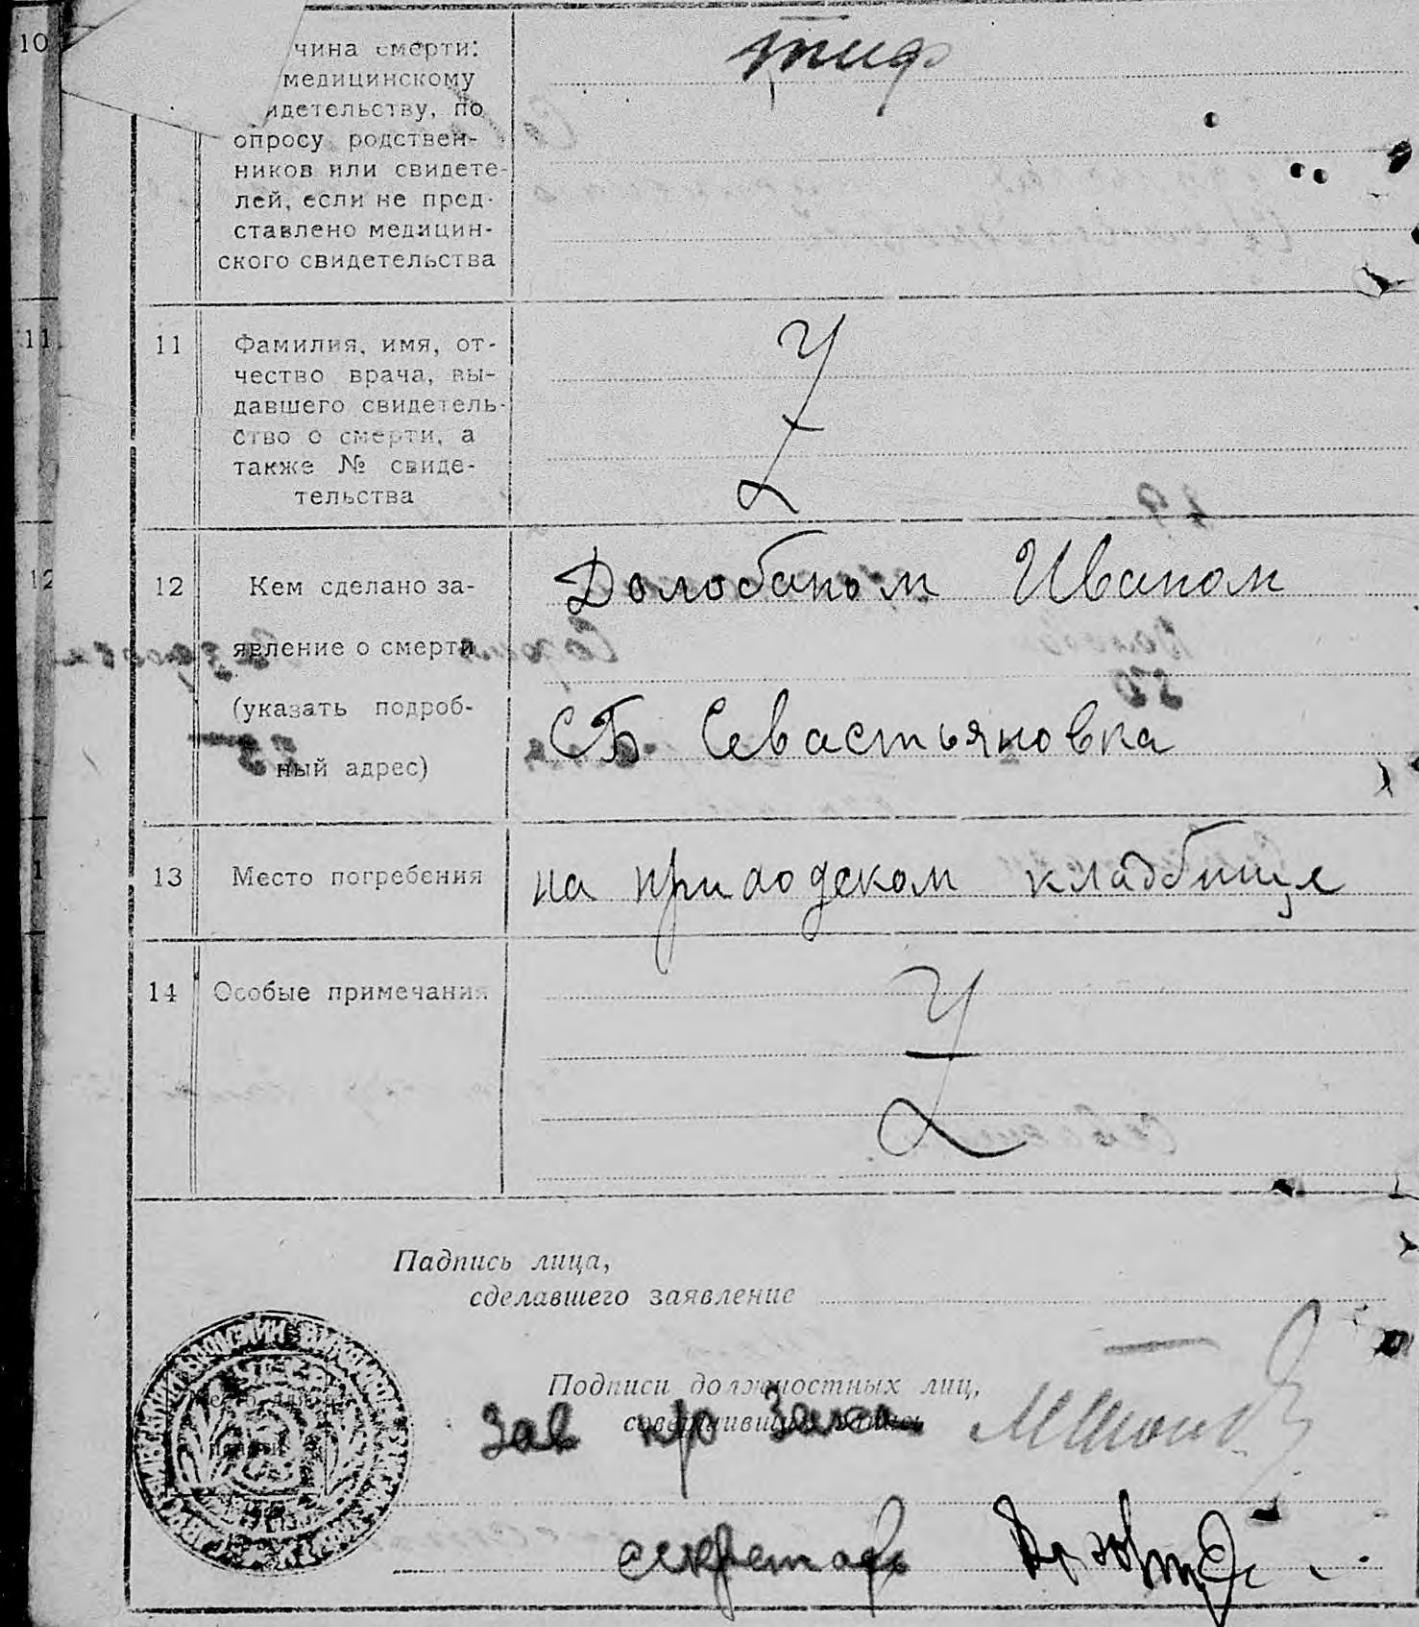 10
чина смерти:
медицинскому
идетельству, по
опросу родствен-
ников или свидете-
лей, если не пред-
ставлено медицин-
ского свидетельства
тиф
11
11
Фамилия, имя, от-
чество врача, вы-
давшего свидетель-
ство о смерти, а
также № свиде-
тельства
Z
12
12
Кем сделано за-
явление о смерти
(указать подроб-
ный адрес)
Долобаном Иваном
СБ. Севастьяновка
1
13
Место погребения
на приходском кладбище
14
Особые примечания
Z
Падпись лица,
сделавшего заявление
Подписи должностных лиц,
совершивших запись
Зав Загса
секретарь